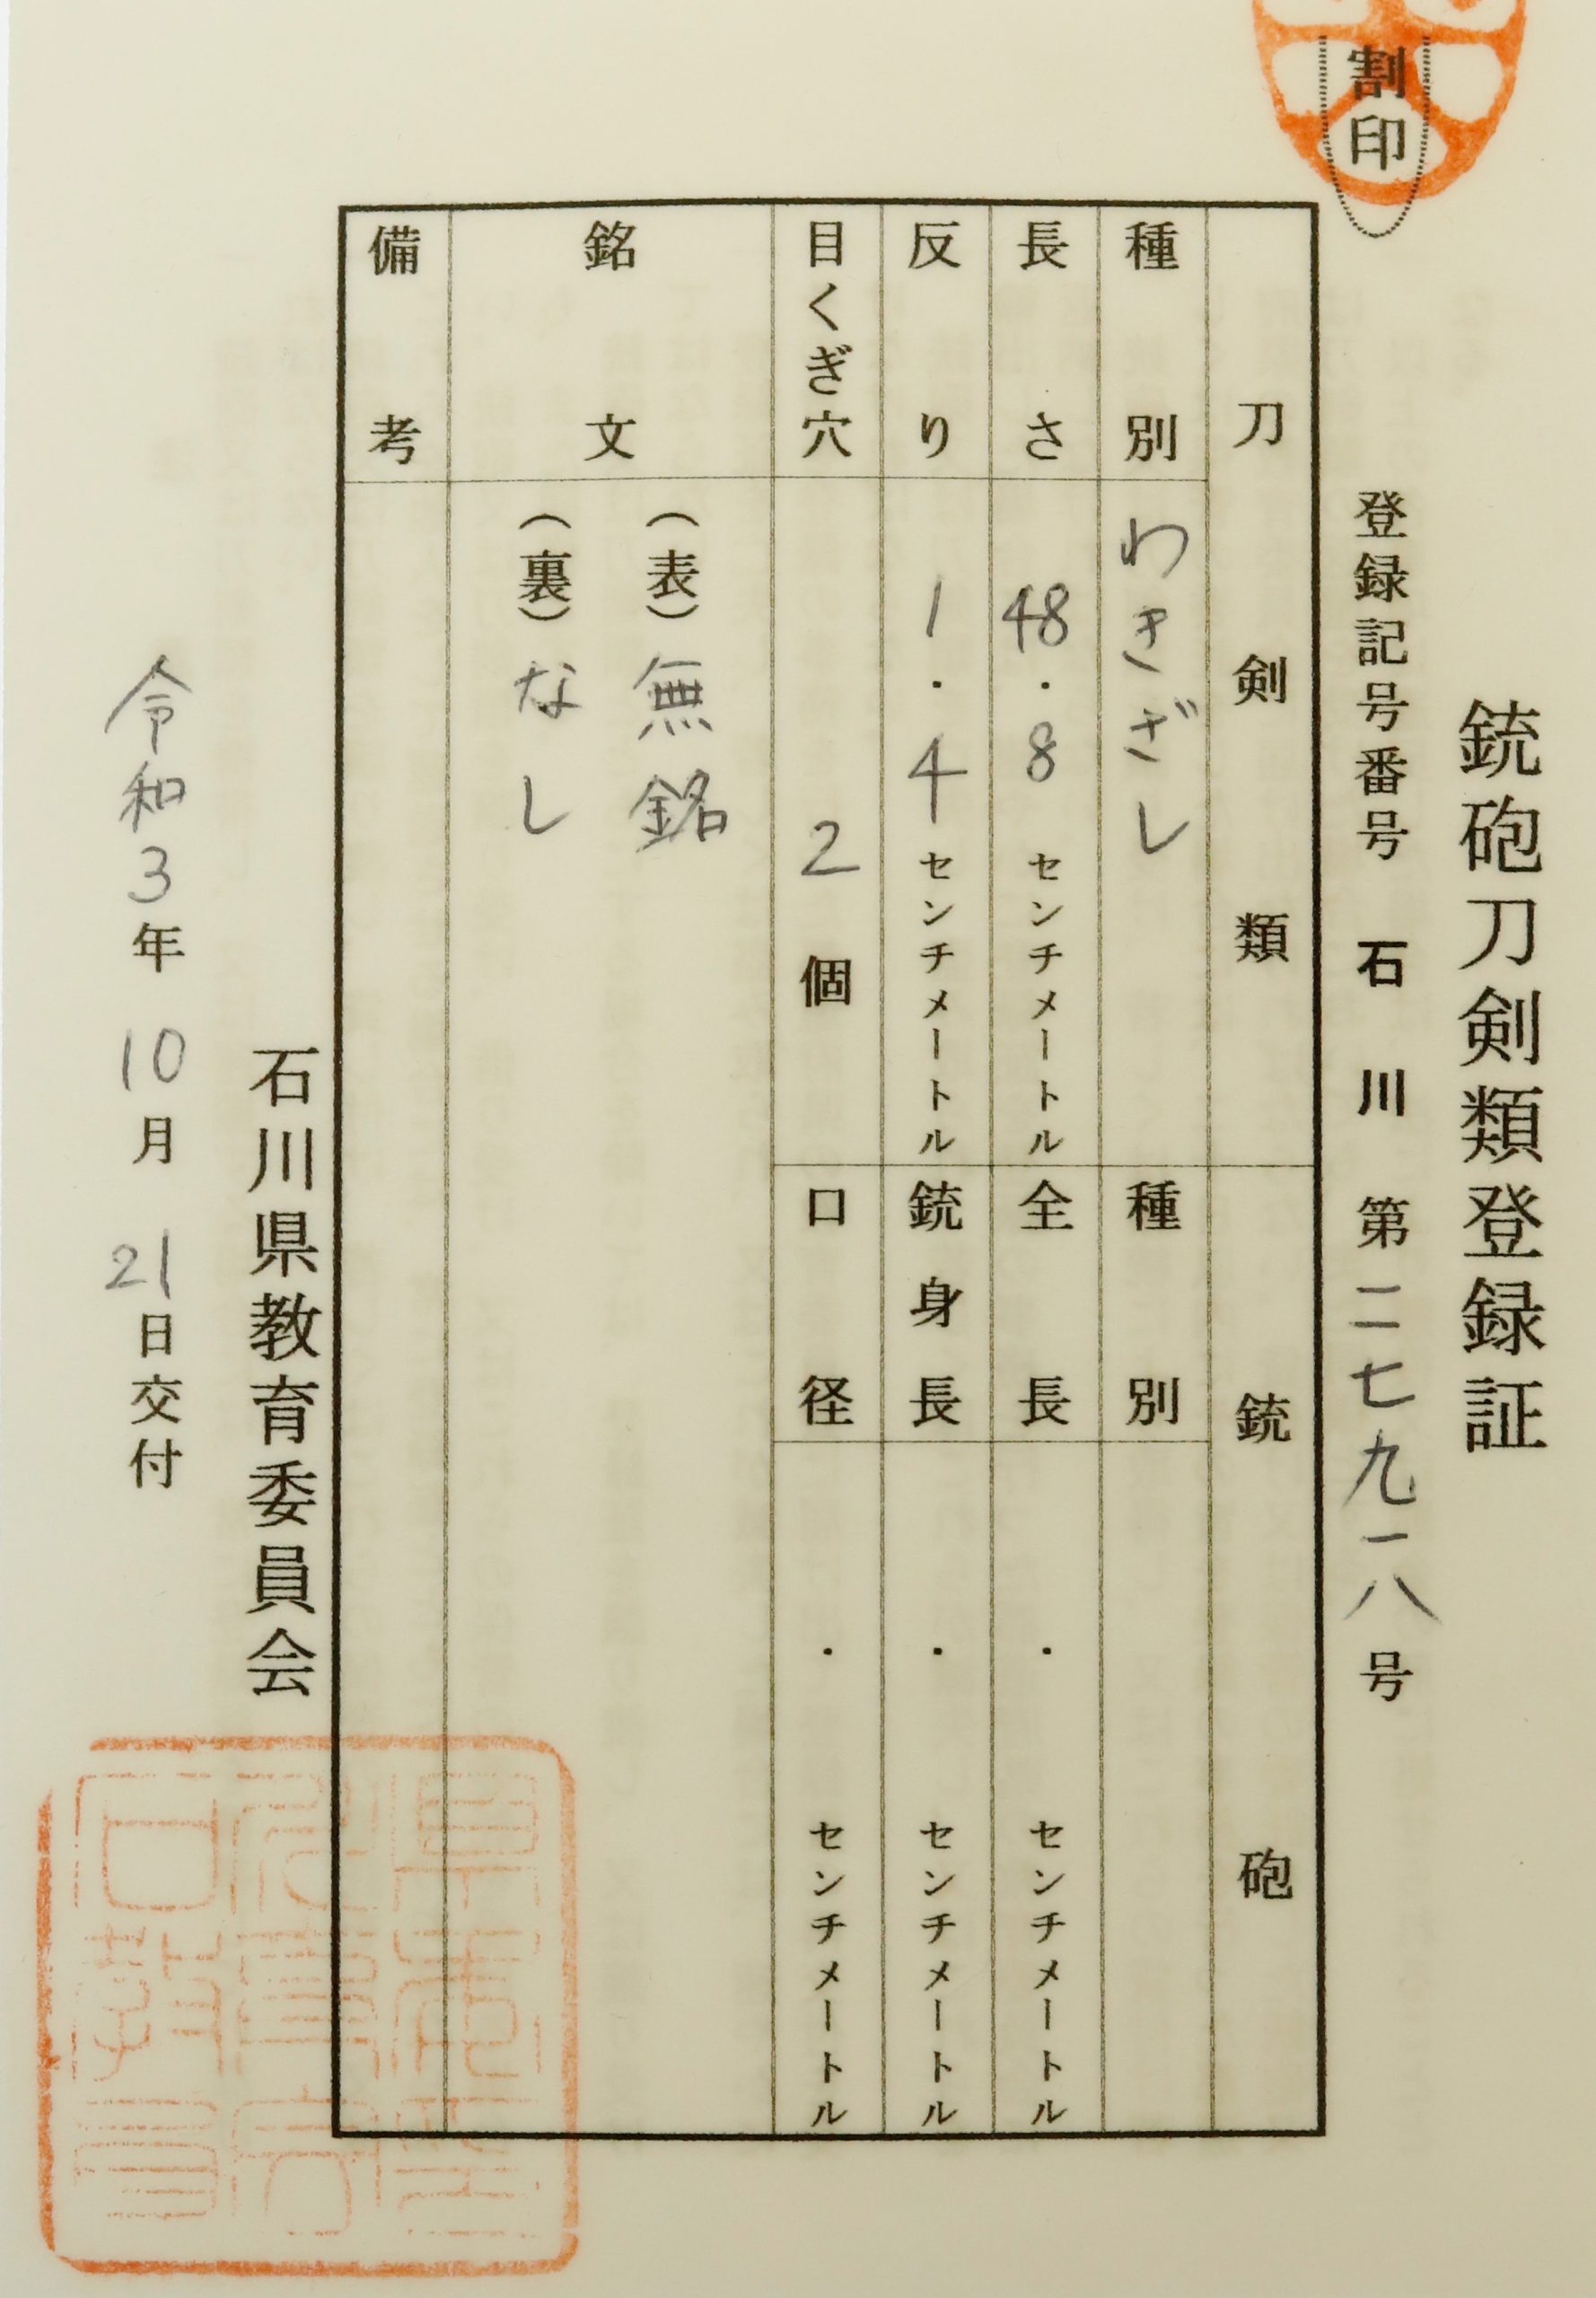 割印
銃砲刀剣類登録証
登録記号番号 石川 第二七九一八号
刀剣類
種別 わきざし
長さ 48.8センチメートル
反り 1.4センチメートル
目くぎ穴 2個
銃砲
種別
全長 ・ センチメートル
銃身長 ・ センチメートル
口径 ・ センチメートル
銘文
（表）無銘
（裏）なし
備考
石川県教育委員会
令和3年10月21日交付